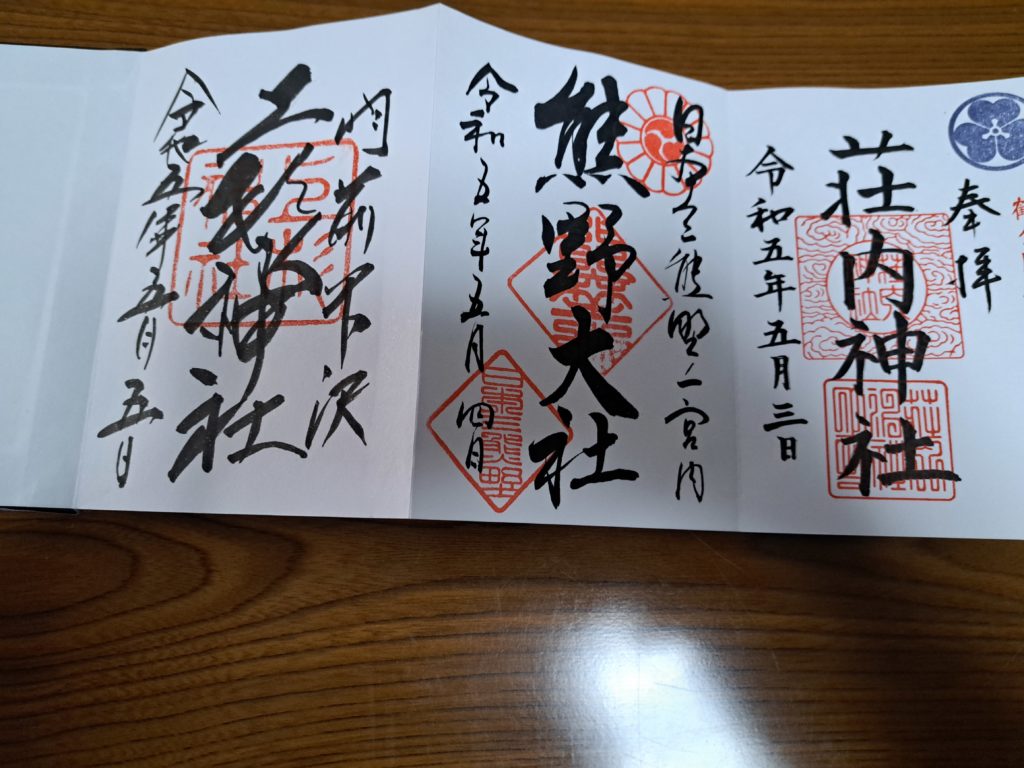 奉拝
荘内神社
令和五年五月三日
日本三熊野ノ一宮内
熊野大社
令和五年五月四日
羽前米沢
上杉神社
令和五年五月五日